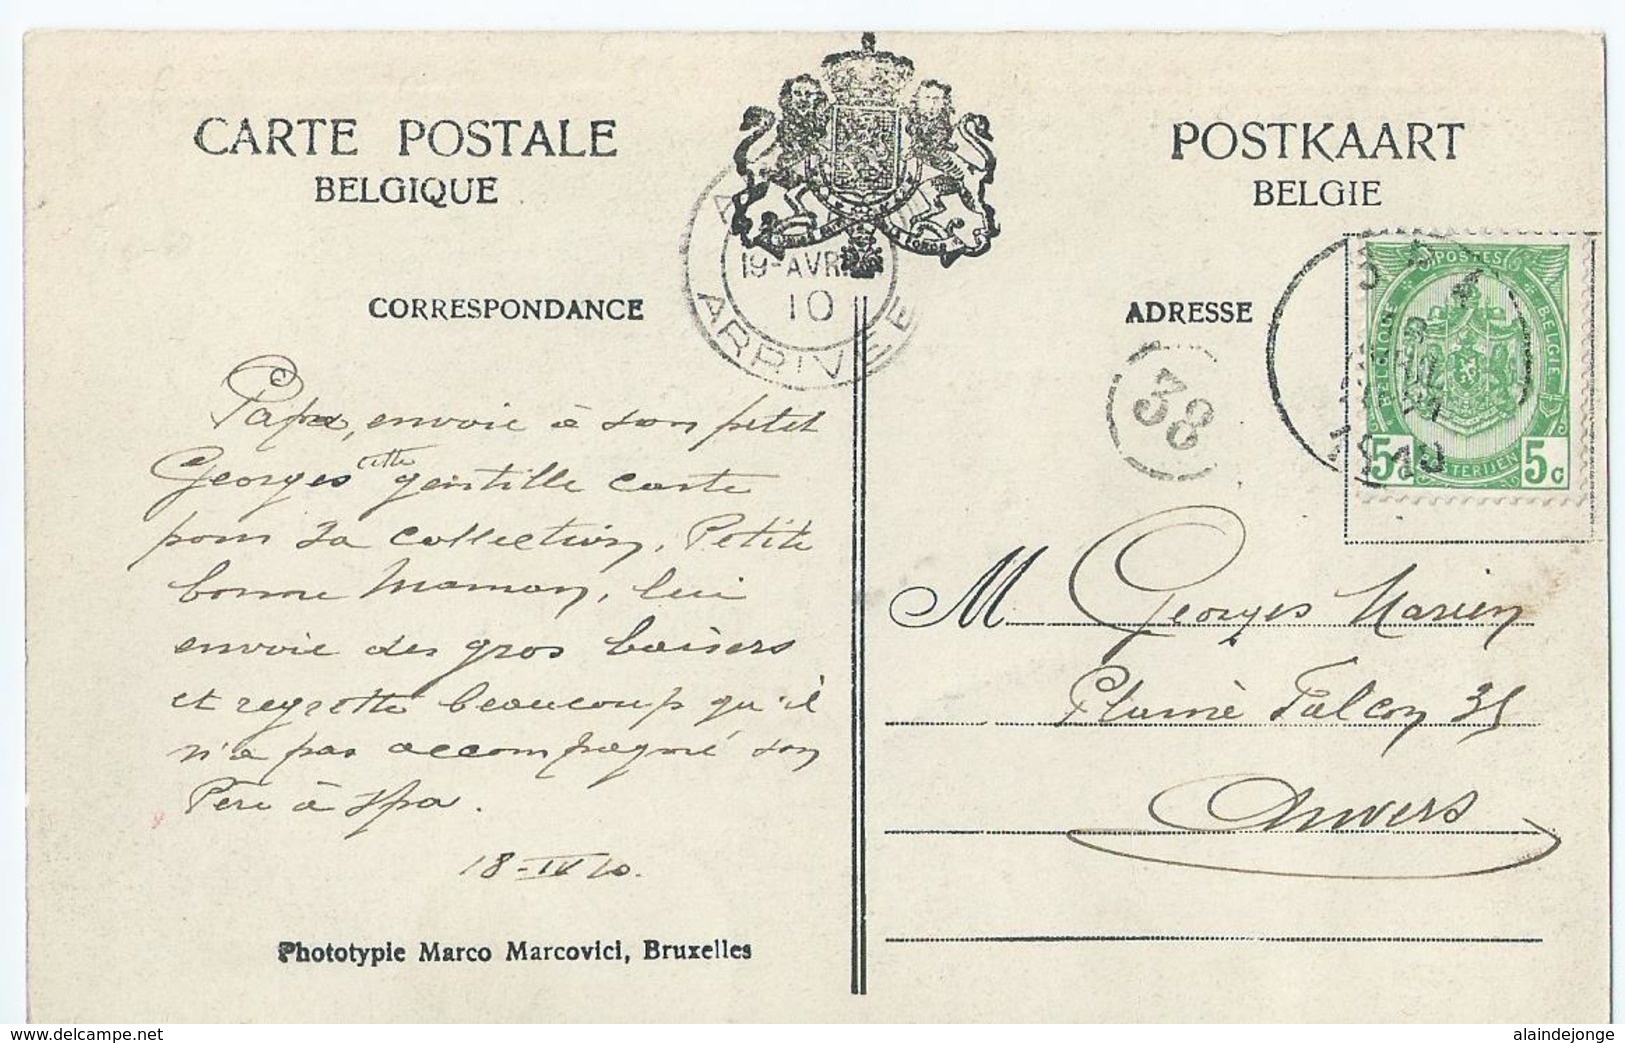 CARTE POSTALE
BELGIQUE
POSTKAART
BELGIE
CORRESPONDANCE
ADRESSE
19-AVR
10
ARRIVEE
38
POSTES
BELGIQUE
BELGIE
5c 5c
1910
Papa, envoie à son petit
Georges cette gentille carte
pour sa collection. Petite
bonne Maman, lui
envoie des gros baisers
et regrette beaucoup qu'il
n'a pas accompagné son
Père à Spa.
18-IV 10.
M Georges Marien
Falcon 35
Anvers
Phototypie Marco Marcovici, Bruxelles
delcampe.net
alaindejonge